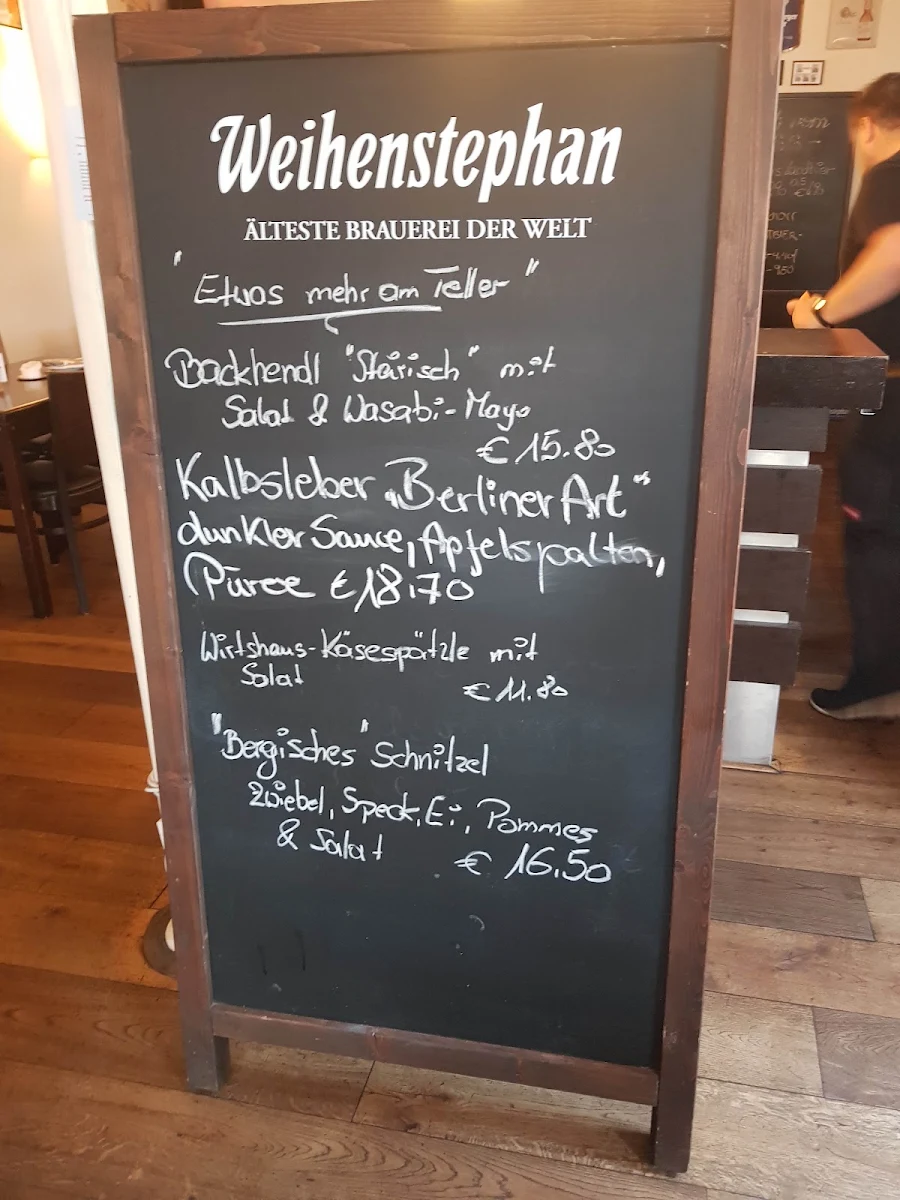 Weihenstephan
ÄLTESTE BRAUEREI DER WELT
"Etwas mehr am Teller"
Backhendl "Steirisch" mit
Salat & Wasabi-Mayo
€ 15.80
Kalbsleber „Berliner Art"
dunkler Sauce, Apfelspalten,
Püree € 18.70
Wirtshaus-Käsespätzle mit
Salat
€ 11.80
"Bergisches" Schnitzel
Zwiebel, Speck, Ei, Pommes
& Salat
€ 16.50